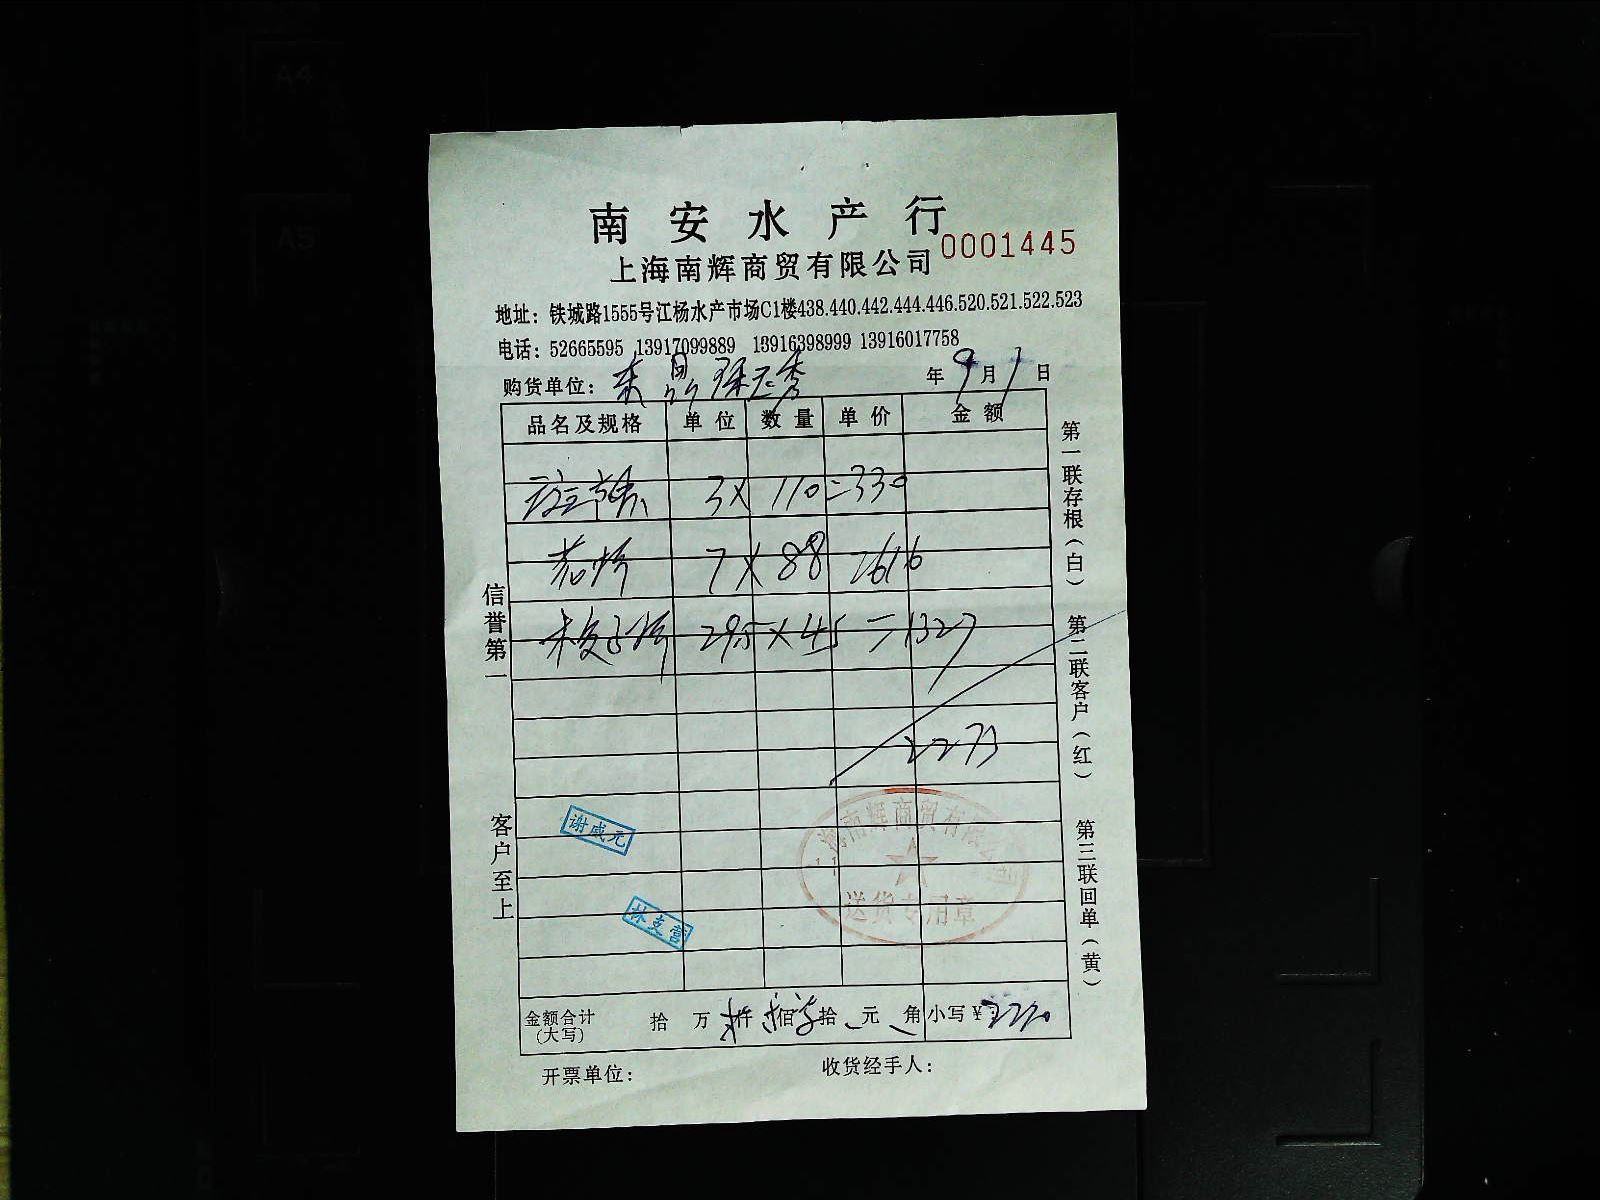 A4
A5
南安水产行
0001445
上海南辉商贸有限公司
地址：铁城路1555号江杨水产市场C1楼438.440.442.444.446.520.521.522.523
电话：52665595 13917099889 13916398999 13916017758
购货单位： 年 9 月 1 日
品名及规格 单位 数量 单价 金额
3 X 110 = 330
7 X 88 = 616
295 X 45 = 1327
2273
信誉第一
客户至上
第一联存根（白）
第二联客户（红）
第三联回单（黄）
谢成元
林支营
上海南辉商贸有限公司
送货专用章
金额合计
(大写)
拾 万 仟 佰 拾 元 角 小写￥2270
开票单位： 收货经手人：